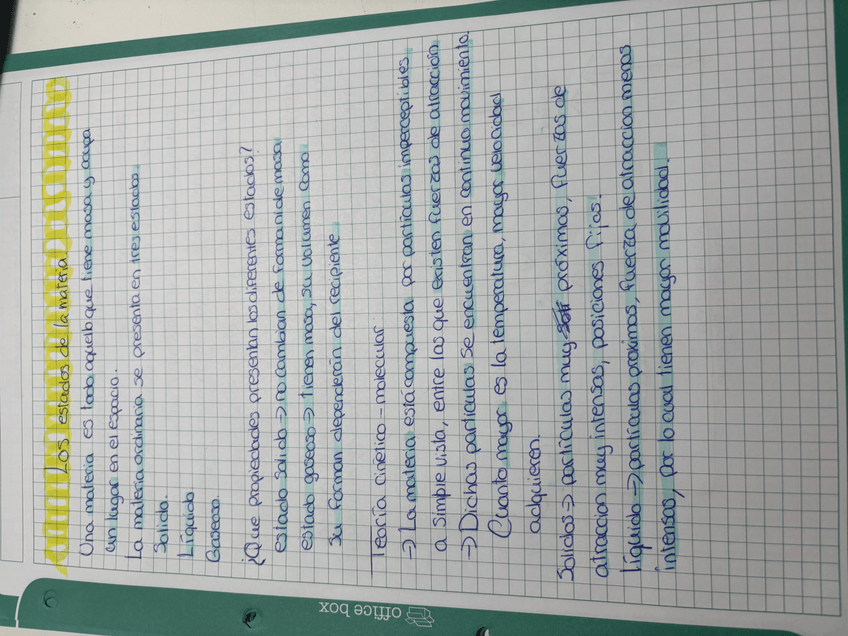 Los estados de la materia
Una materia es todo aquello que tiene masa y ocupa
un lugar en el espacio.
La materia ordinaria se presenta en tres estados.
Solido.
Líquido.
Gaseoso.
¿Que propiedades presentan los diferentes estados?
estado solido -> no cambian de forma ni de masa
estado gaseoso -> tienen masa, su volumen como
su forman dependerán del recipiente.
Teoría cinético-molecular
-> La materia está compuesta por partículas imperceptibles
a simple vista, entre las que existen fuerzas de atracción
-> Dichas partículas se encuentran en continuo movimiento
Cuanto mayor es la temperatura, mayor velocidad
adquieren.
Solidos -> partículas muy próximas, fuerzas de
atraccion muy intensas, posiciones fijas.
Líquido -> partículas próximas, fuerza de atraccion menos
intensas, por lo cual tienen mayor movilidad.
office box